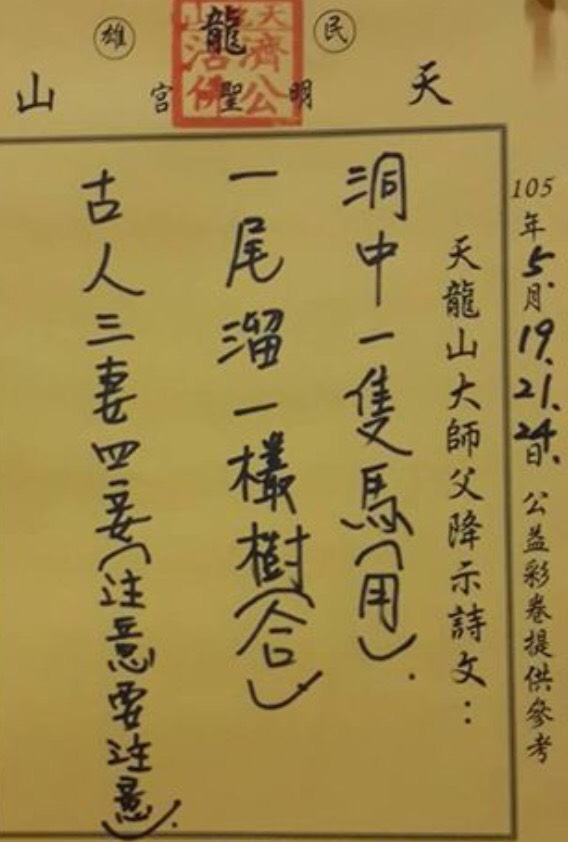 民雄
天龍山
明聖宮
濟公活佛
105年5.月19.21.24.日 公益彩卷提供參考
天龍山大師父降示詩文：
洞中一隻馬(用).
一尾溜一欉樹(合).
古人三妻四妾(注意要注意).